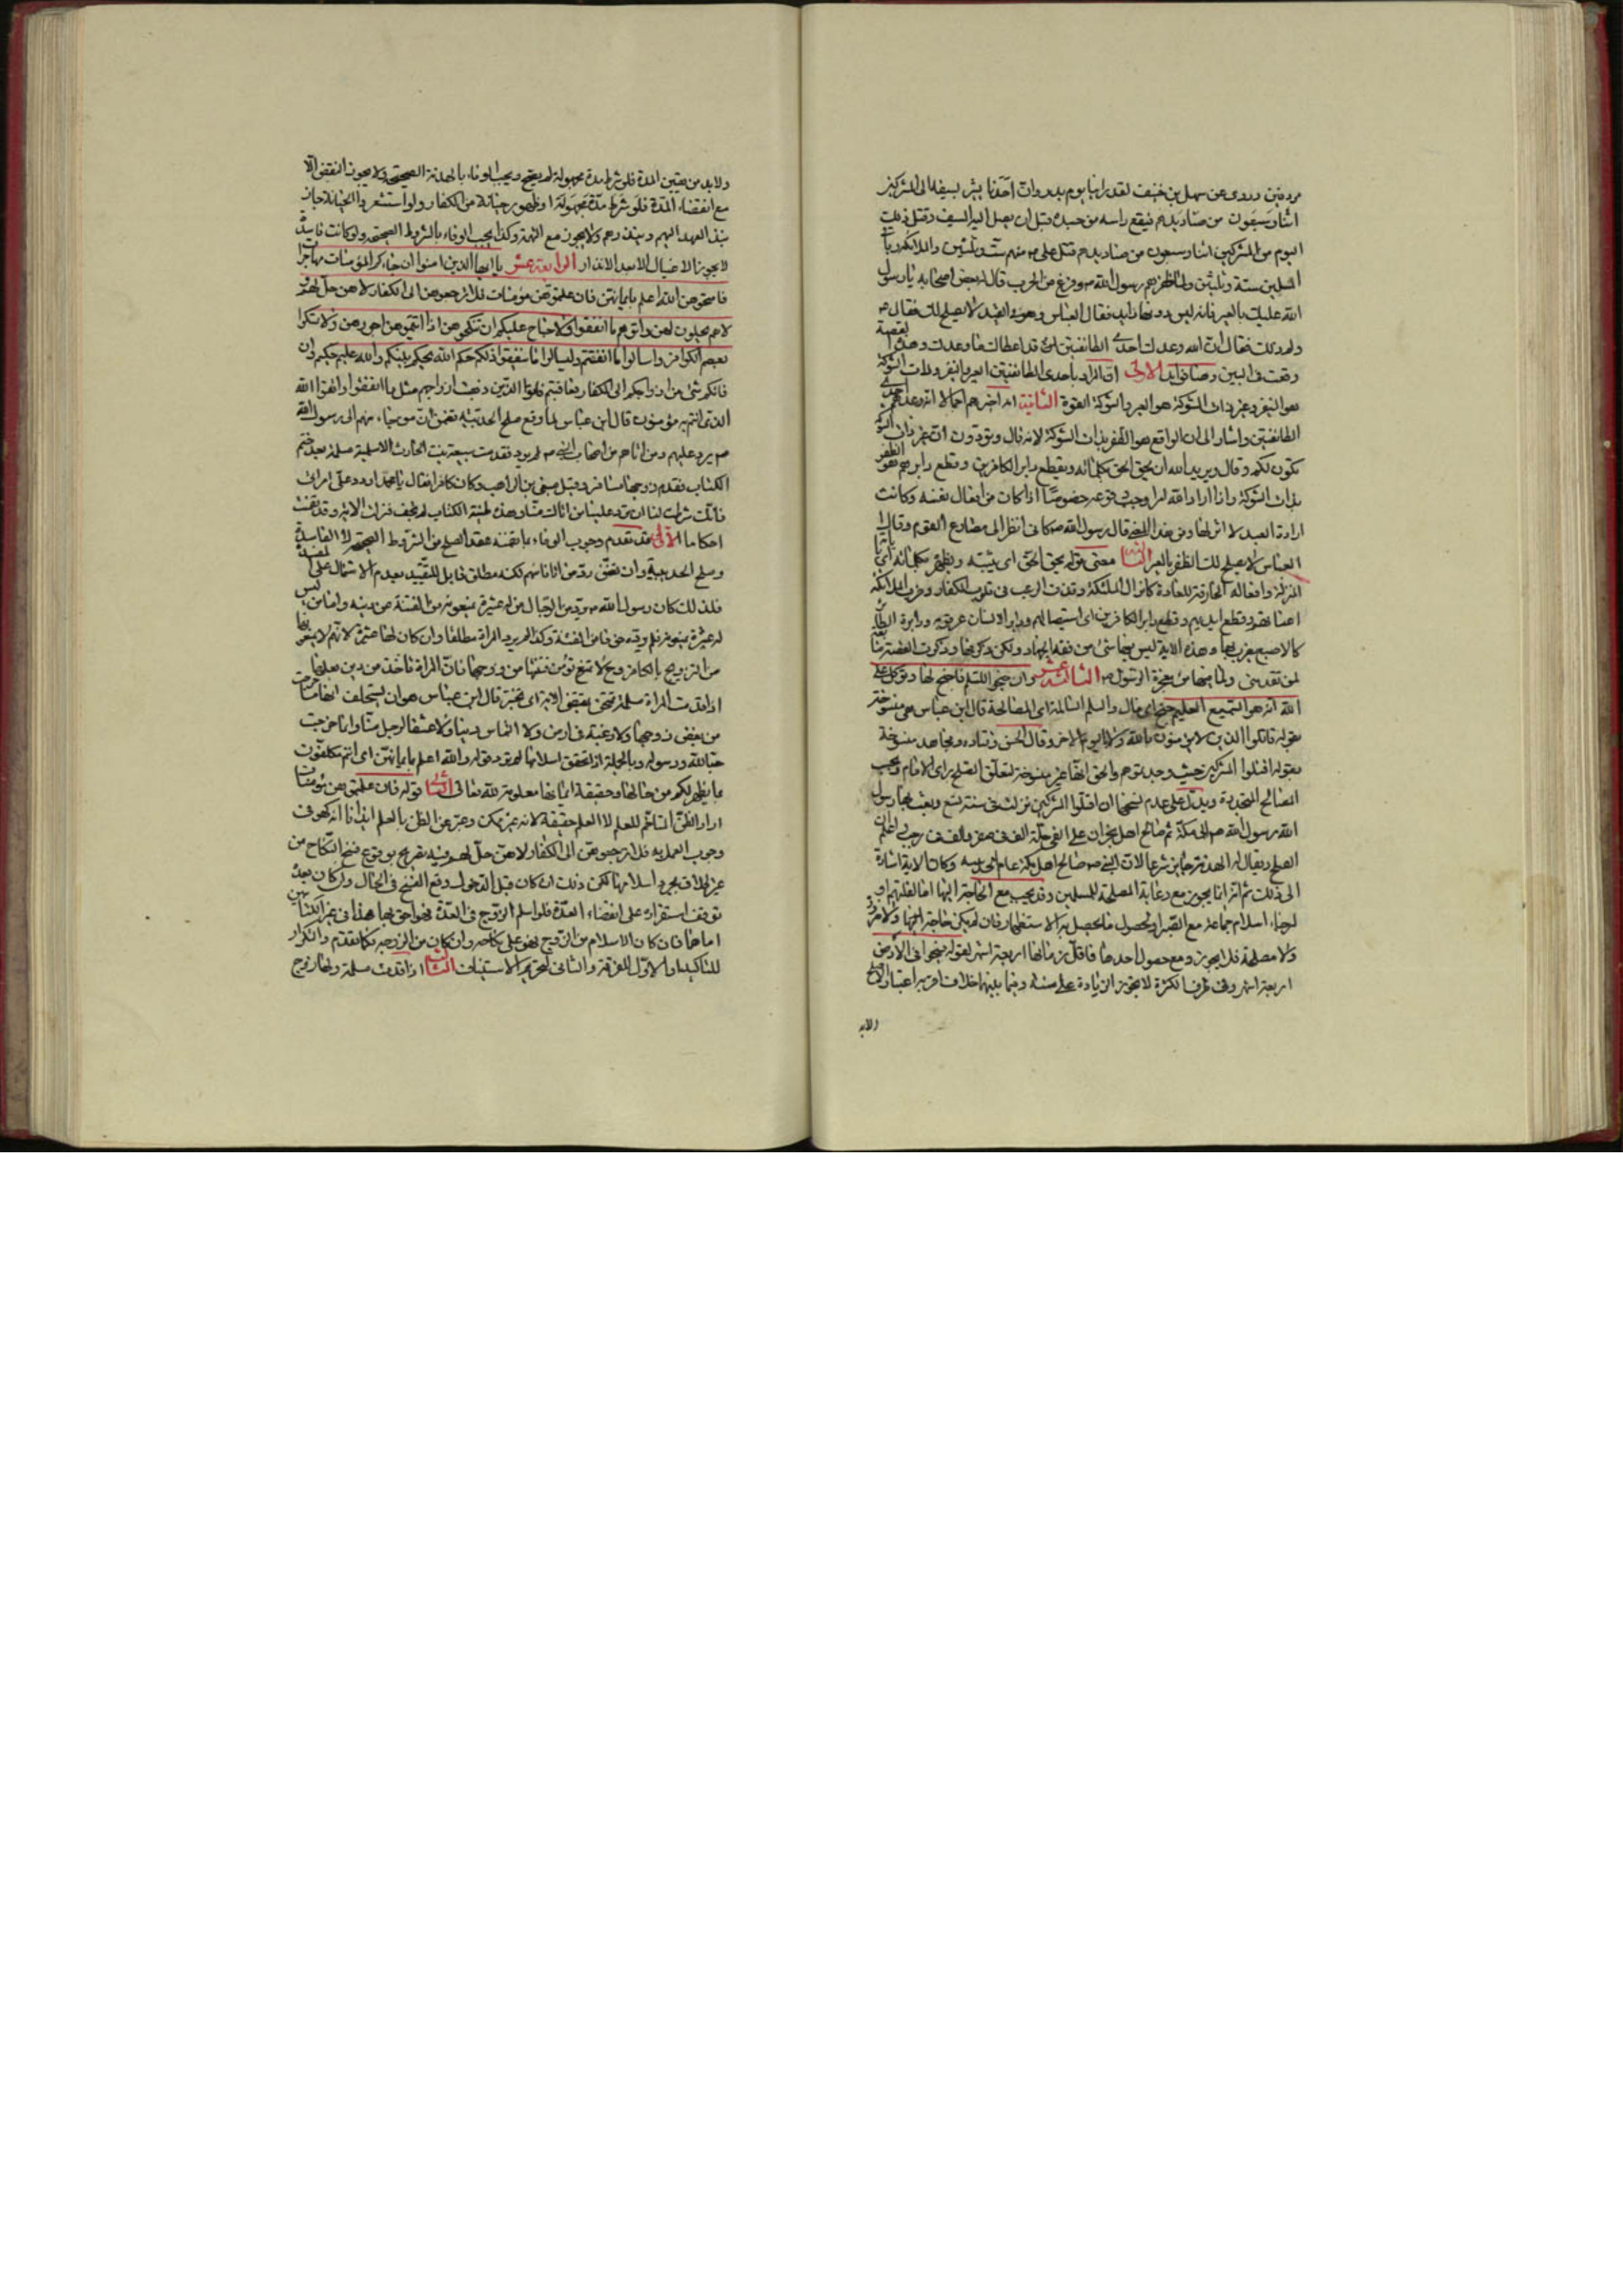 مردفين وروى عن سهل بن حنيف لقد راينا يوم بدر وان احدنا يشير بسيفه الى المشركين
فيقع راسه من جسده قبل ان يصل اليه السيف وقتل ذلك
اليوم من المشركين اثنان وسبعون من صناديدهم قتل على منهم ستة وثلثين والملائكة وباقى
المسلمين ستة وثلثين ولما ظفرهم رسول الله ص وفرغ من الحرب قال له بعض اصحابه يا رسول
الله عليك بالعير فانه ليس دونها احد فقال العباس وهو فى القيد لا يصلح لك فقال ص
ولم ذلك فقال ان الله وعدك احدى الطائفتين وقد اعطاك ما وعدك وهذه القصة
وقعت فى البين وهنا فوايد الاولى ان المراد باحدى الطائفتين العير والنفير وذات الشوكة
هو النفير وغير ذات الشوكة هو العير والشوكة القوة الثانية انه اخبرهم اجمالا انه وعدهم احدى
الطائفتين واشار الى ان الواقع هو الظفر بذات الشوكة لانه قال وتودون ان غير ذات الشوكة
تكون لكم وقال ويريد الله ان يحق الحق بكلماته ويقطع دابر الكافرين وقطع دابرهم هو الظفر
بذات الشوكة واذا اراد الله امرا وجب وقوعه خصوصا اذا كان من افعال نفسه وكانت
ارادة العبد لا اثر لها ومن هذا قال رسول الله ص كانى انظر الى مصارع القوم وقال
العباس لا يصلح لك الظفر بالعير الثالثة معنى قوله يحق الحق اى يثبته ويظهر بكلماته اى باياته
المنزلة وافعاله الخارقة للعادة كانزال الملئكة وقذف الرعب فى قلوب الكفار وضرب الملائكة
اعناقهم وقطع ايديهم وقطع دابر الكافرين اى استيصالهم ودابر الانسان عرقوبه ودابرة الطاير
كالاصبع يضرب بها وهذه الاية ليس فيها شئ من فقه الجهاد ولكن ذكرناها وذكرت القصة تيمنا
لمن تقدمنى ولما فيها من معجزة الرسول ص الثالثة عشر وان جنحوا للسلم فاجنح لها وتوكل على
الله انه هو السميع العليم جنح اى مال والسلم المسالمة اى المصالحة قال ابن عباس هى منسوخة
بقوله قاتلوا الذين لا يؤمنون بالله ولا باليوم الاخر وقال الحسن وقتاده ومجاهد منسوخة
بقوله اقتلوا المشركين حيث وجدتموهم والحق انها غير منسوخة لتعلق الصلح براى الامام وبحسب
المصالح المتجددة ويدل على عدم نسخها ان اقتلوا المشركين نزلت فى سنة تسع وبعث بها رسول
الله رسول الله ص الى مكة ثم صالح اهل نجران على الفى حلة الف فى صفر والف فى رجب اعلم ان
الصلح ويقال له الهدنة جايز شرعا لان النبى ص صالح اهل مكة عام الحديبيه وكان الاية اشارة
الى ذلك ثم انه انما يجوز مع رعاية المصلحة للمسلمين وقد يجب مع الحاجة اليها اما لقلتهم او
لرجاء اسلام جماعة مع الصبر او لحصول ما يحصل به الاستظهار فان لم يكن حاجة اليها ولا ضرورة
ولا مصلحة فلا يجوز ومع حصول احدها فاقل زمانها اربعة اشهر لقوله فسيحوا فى الارض
اربعة اشهر وفى طرف الكثرة لا يجوز الزيادة على سنة وفيما بينهما خلاف اقربه اعتبار الاصلح
ولابد
ولابد من تعيين المدة فلو شرط مدة مجهولة لم يصح ويجب الوفاء بالهدنة الصحيحة ولا يجوز النقض الا
مع انقضاء المدة او ظهور خيانة من الكفار ولو استشعر والخيانة جاز
نبذ العهد اليهم وينذرهم ولا يجوز مع التهمة وكذا يجب الوفاء بالشروط الصحيحة ولو كانت فاسدة
لا يجوز الا بعد الانذار الرابعة عشر يا ايها الذين امنوا ان جاءكم المؤمنات مهاجرات
فامتحنوهن الله اعلم بايمانهن فان علمتموهن مؤمنات فلا ترجعوهن الى الكفار لا هن حل لهم و
لا هم يحلون لهن واتوهم ما انفقوا ولا جناح عليكم ان تنكحوهن اذا اتيتموهن اجورهن ولا تمسكوا
بعصم الكوافر واسالوا ما انفقتم وليسالوا ما انفقوا ذلكم حكم الله يحكم بينكم والله عليم حكيم وان
فاتكم شئ من ازواجكم الى الكفار فعاقبتم فاتوا الذين ذهبت ازواجهم مثل ما انفقوا واتقوا الله
الذى انتم به مؤمنون قال ابن عباس لما وقع صلح الحديبية تضمن ان من جاء منهم الى رسول الله
ص يرد عليهم ومن اتاهم من اصحاب النبى ص لم يرد فقدمت سبيعة بنت الحارث الاسلمية مسلمة بعد ختم
الكتاب فقدم زوجها مسافر وقيل صيفى بن الراهب وكان كافرا فقال يا محمد اردد على امراتى
فانك شرطت لنا ان ترد علينا من اتاك منا وهذه طينة الكتاب لم تجف فنزلت الاية وقد تضمنت
احكاما الاول قد تقدم وجوب الوفاء بما تضمنه عقد الصلح من الشروط الصحيحة لا الفاسدة
وصلح الحديبية وان تضمن رد من اتانا منهم لكنه مطلق قابل للتقييد بعدم الاشتمال على مفسدة
فلذلك كان رسول الله ص يرد من الرجال من له عشيرة يمنعونه من الفتنة عن دينه واما من ليس
له عشيرة يمنعونه فلم يرده خوفا من الفتنة وكذا لم يرد المراة مطلقا وان كان لها عشيرة لانهم لا يمنعونها
من التزويج بالكافر وح لا تؤمن فتنتها من زوجها فان المراة تاخذ من دين بعلها
اذا قدمت المراة مسلمة تمتحن بمقتضى الاية اى تختبر قال ابن عباس هو ان يستحلف انها ما خرجت
من بغض زوجها ولا رغبة فى ارض ولا التماس دنيا ولا عشقا لرجل منا وانما خرجت
حبا لله ورسوله وبالجملة اذا تحقق اسلامها لم ترد قوله والله اعلم بايمانهن اى انتم مكلفون
بما يظهر لكم من حالها وحقيقة ايمانها معلومة لله تعالى الثانى قوله فان علمتموهن مؤمنات
اراد الظن المتاخم للعلم لا العلم حقيقة لانه غير ممكن وعبر عن الظن بالعلم ايذانا انه كهو فى
وجوب العمل به فلا ترجعوهن الى الكفار لا هن حل لهم فيه تصريح بوقوع فسخ النكاح من
غير طلاق بمجرد اسلامها لكن ذلك ان كان قبل الدخول وقع الفسخ فى الحال وان كان بعده
توقف استقراره على انقضاء العدة فلو اسلم الزوج فى العدة فهو احق بها هذا فى غير الكتابيين
اما هما فان كان الاسلام من الزوج فهو على نكاحه وان كان من الزوجة فكما تقدم والتكرار
للتاكيد او الاول للفرقة والثانى لتحريم الاستيناف الثالث اذا قدمت مسلمة ولها زوج